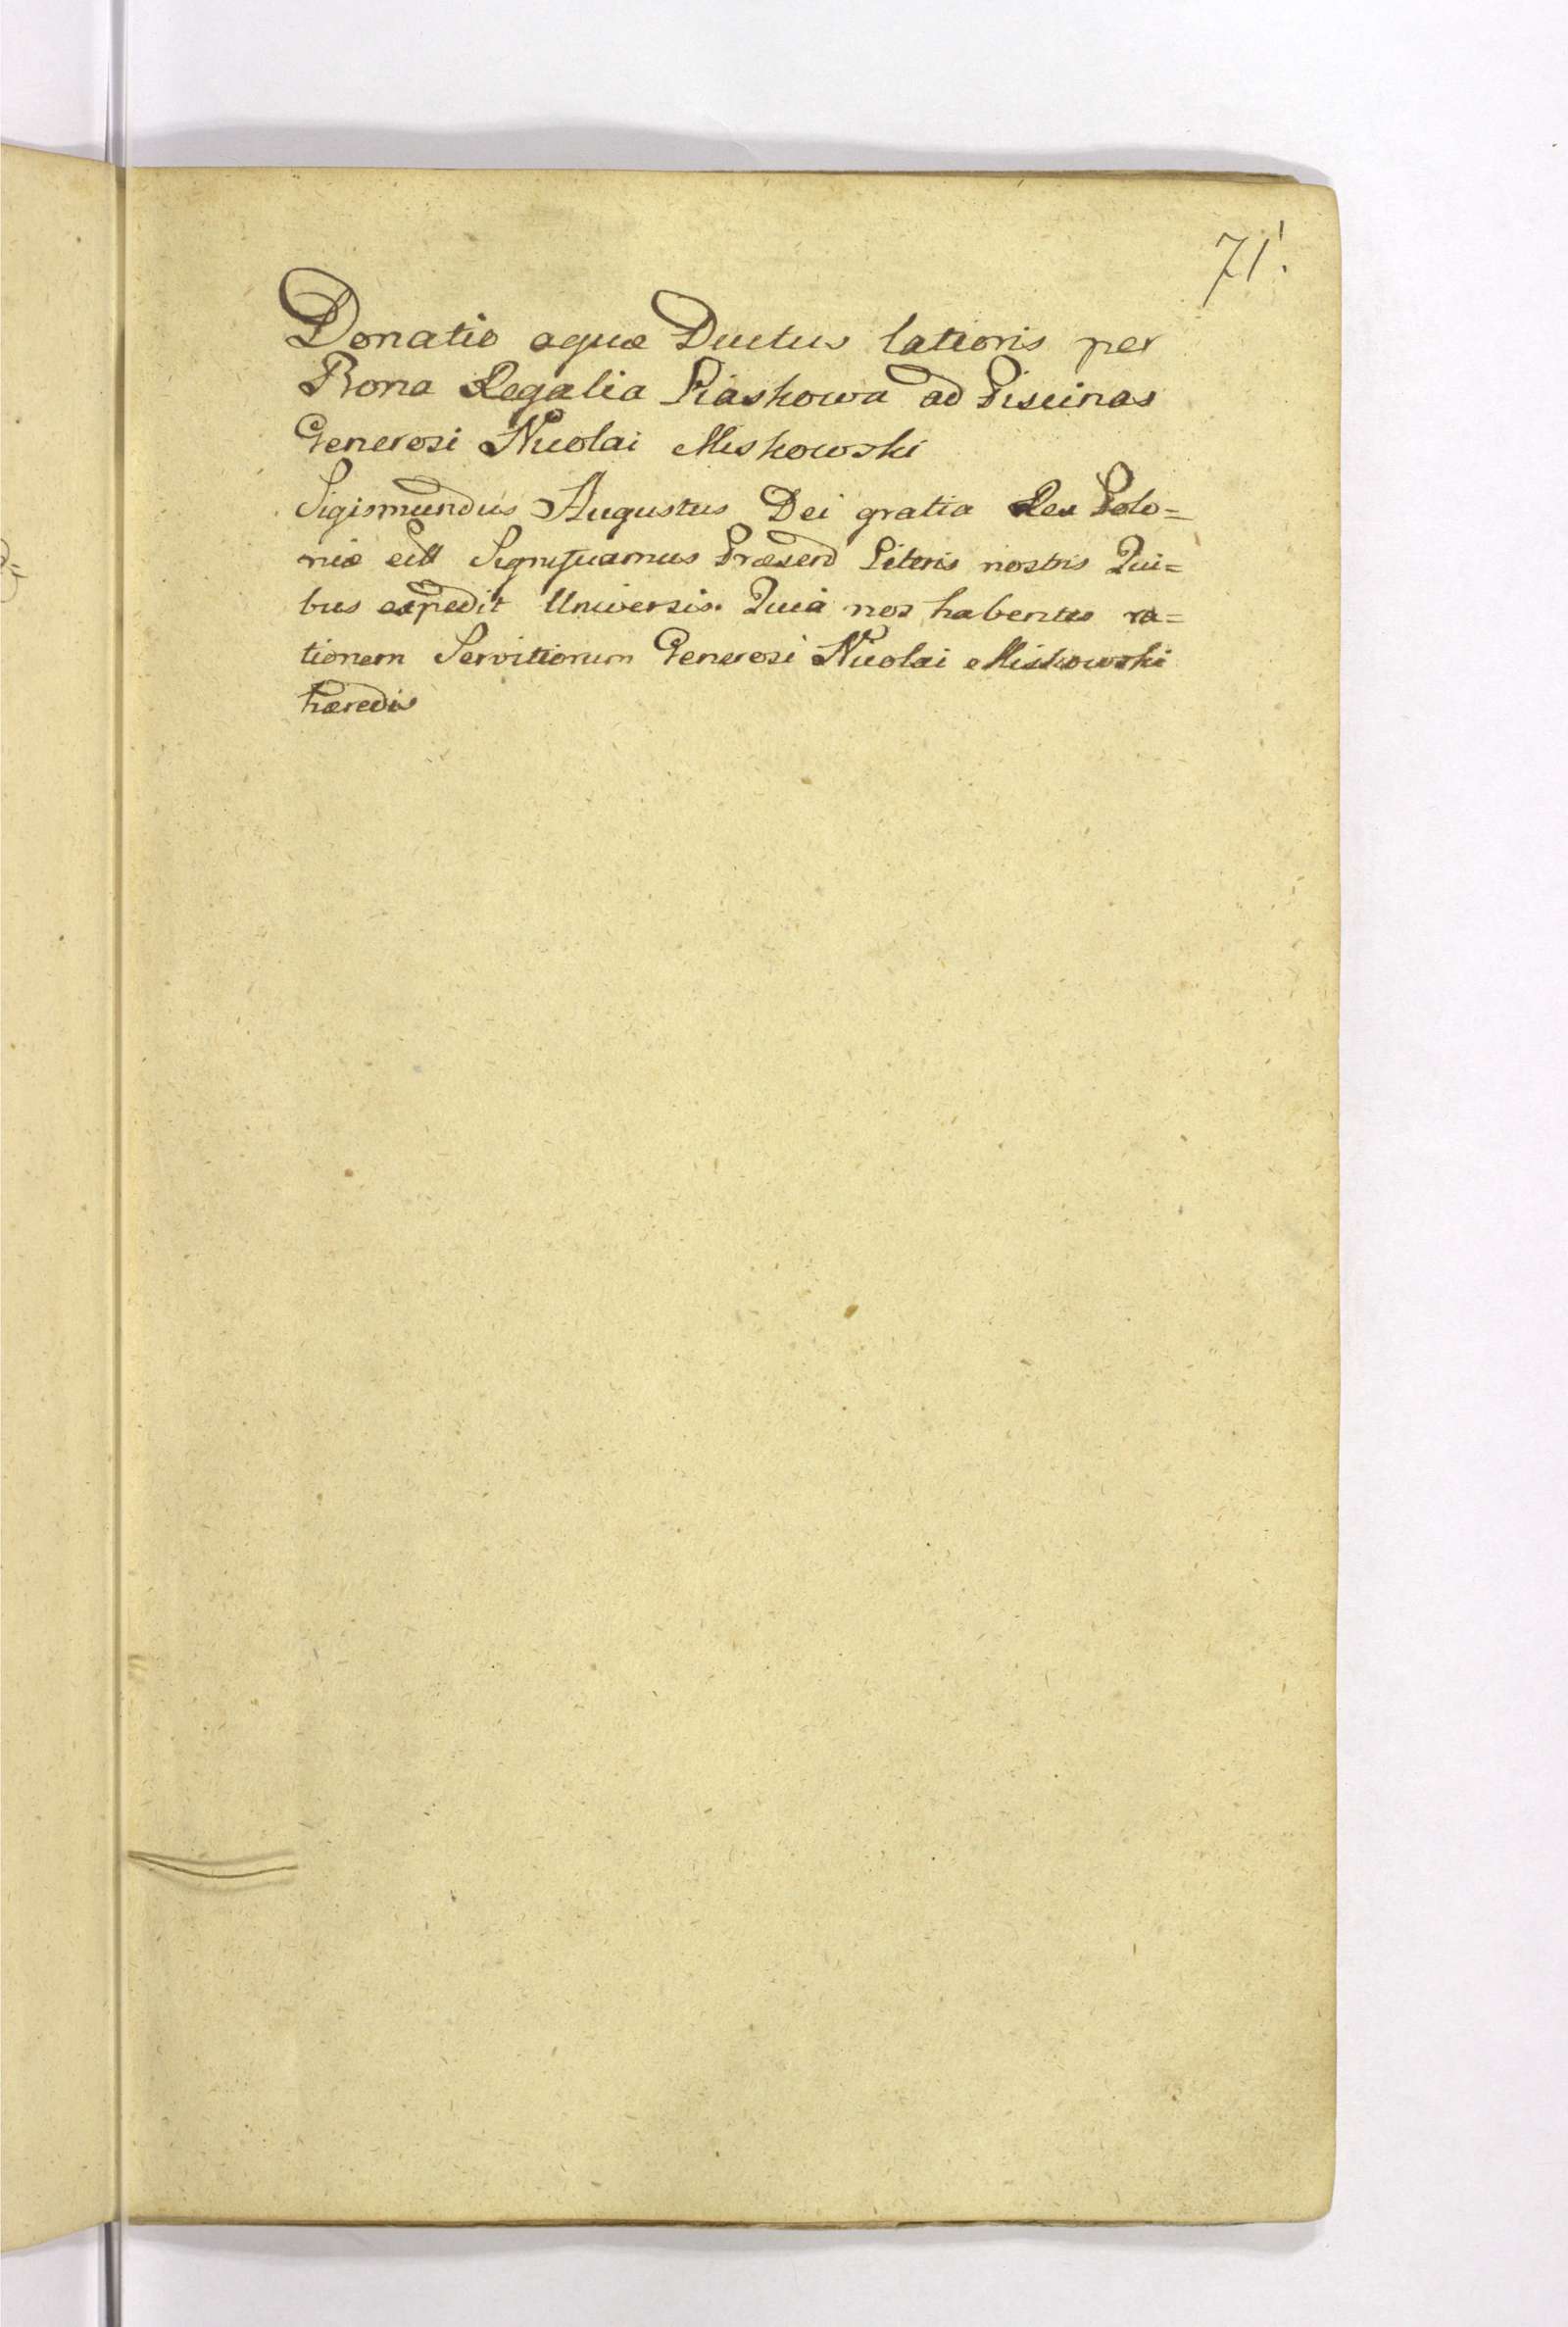 71.
Donatio aquæ Ductus latioris per
Bona Regalia Piaskowa ad Piscinas
Generosi Nicolai Miskowski
Sigismundus Augustus Dei gratia Rex Polo=
niæ Significamus Præsend Literis nostris Qui=
bus expedit Universis. Quia nos habentes ra=
tionem Servitiorum Generosi Nicolai Miskowski
hæredis